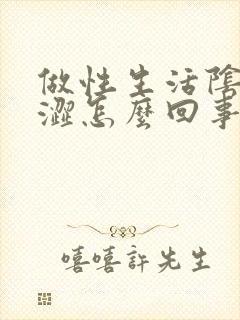 做性生活陰
澀怎麼回事
嘻嘻許先生